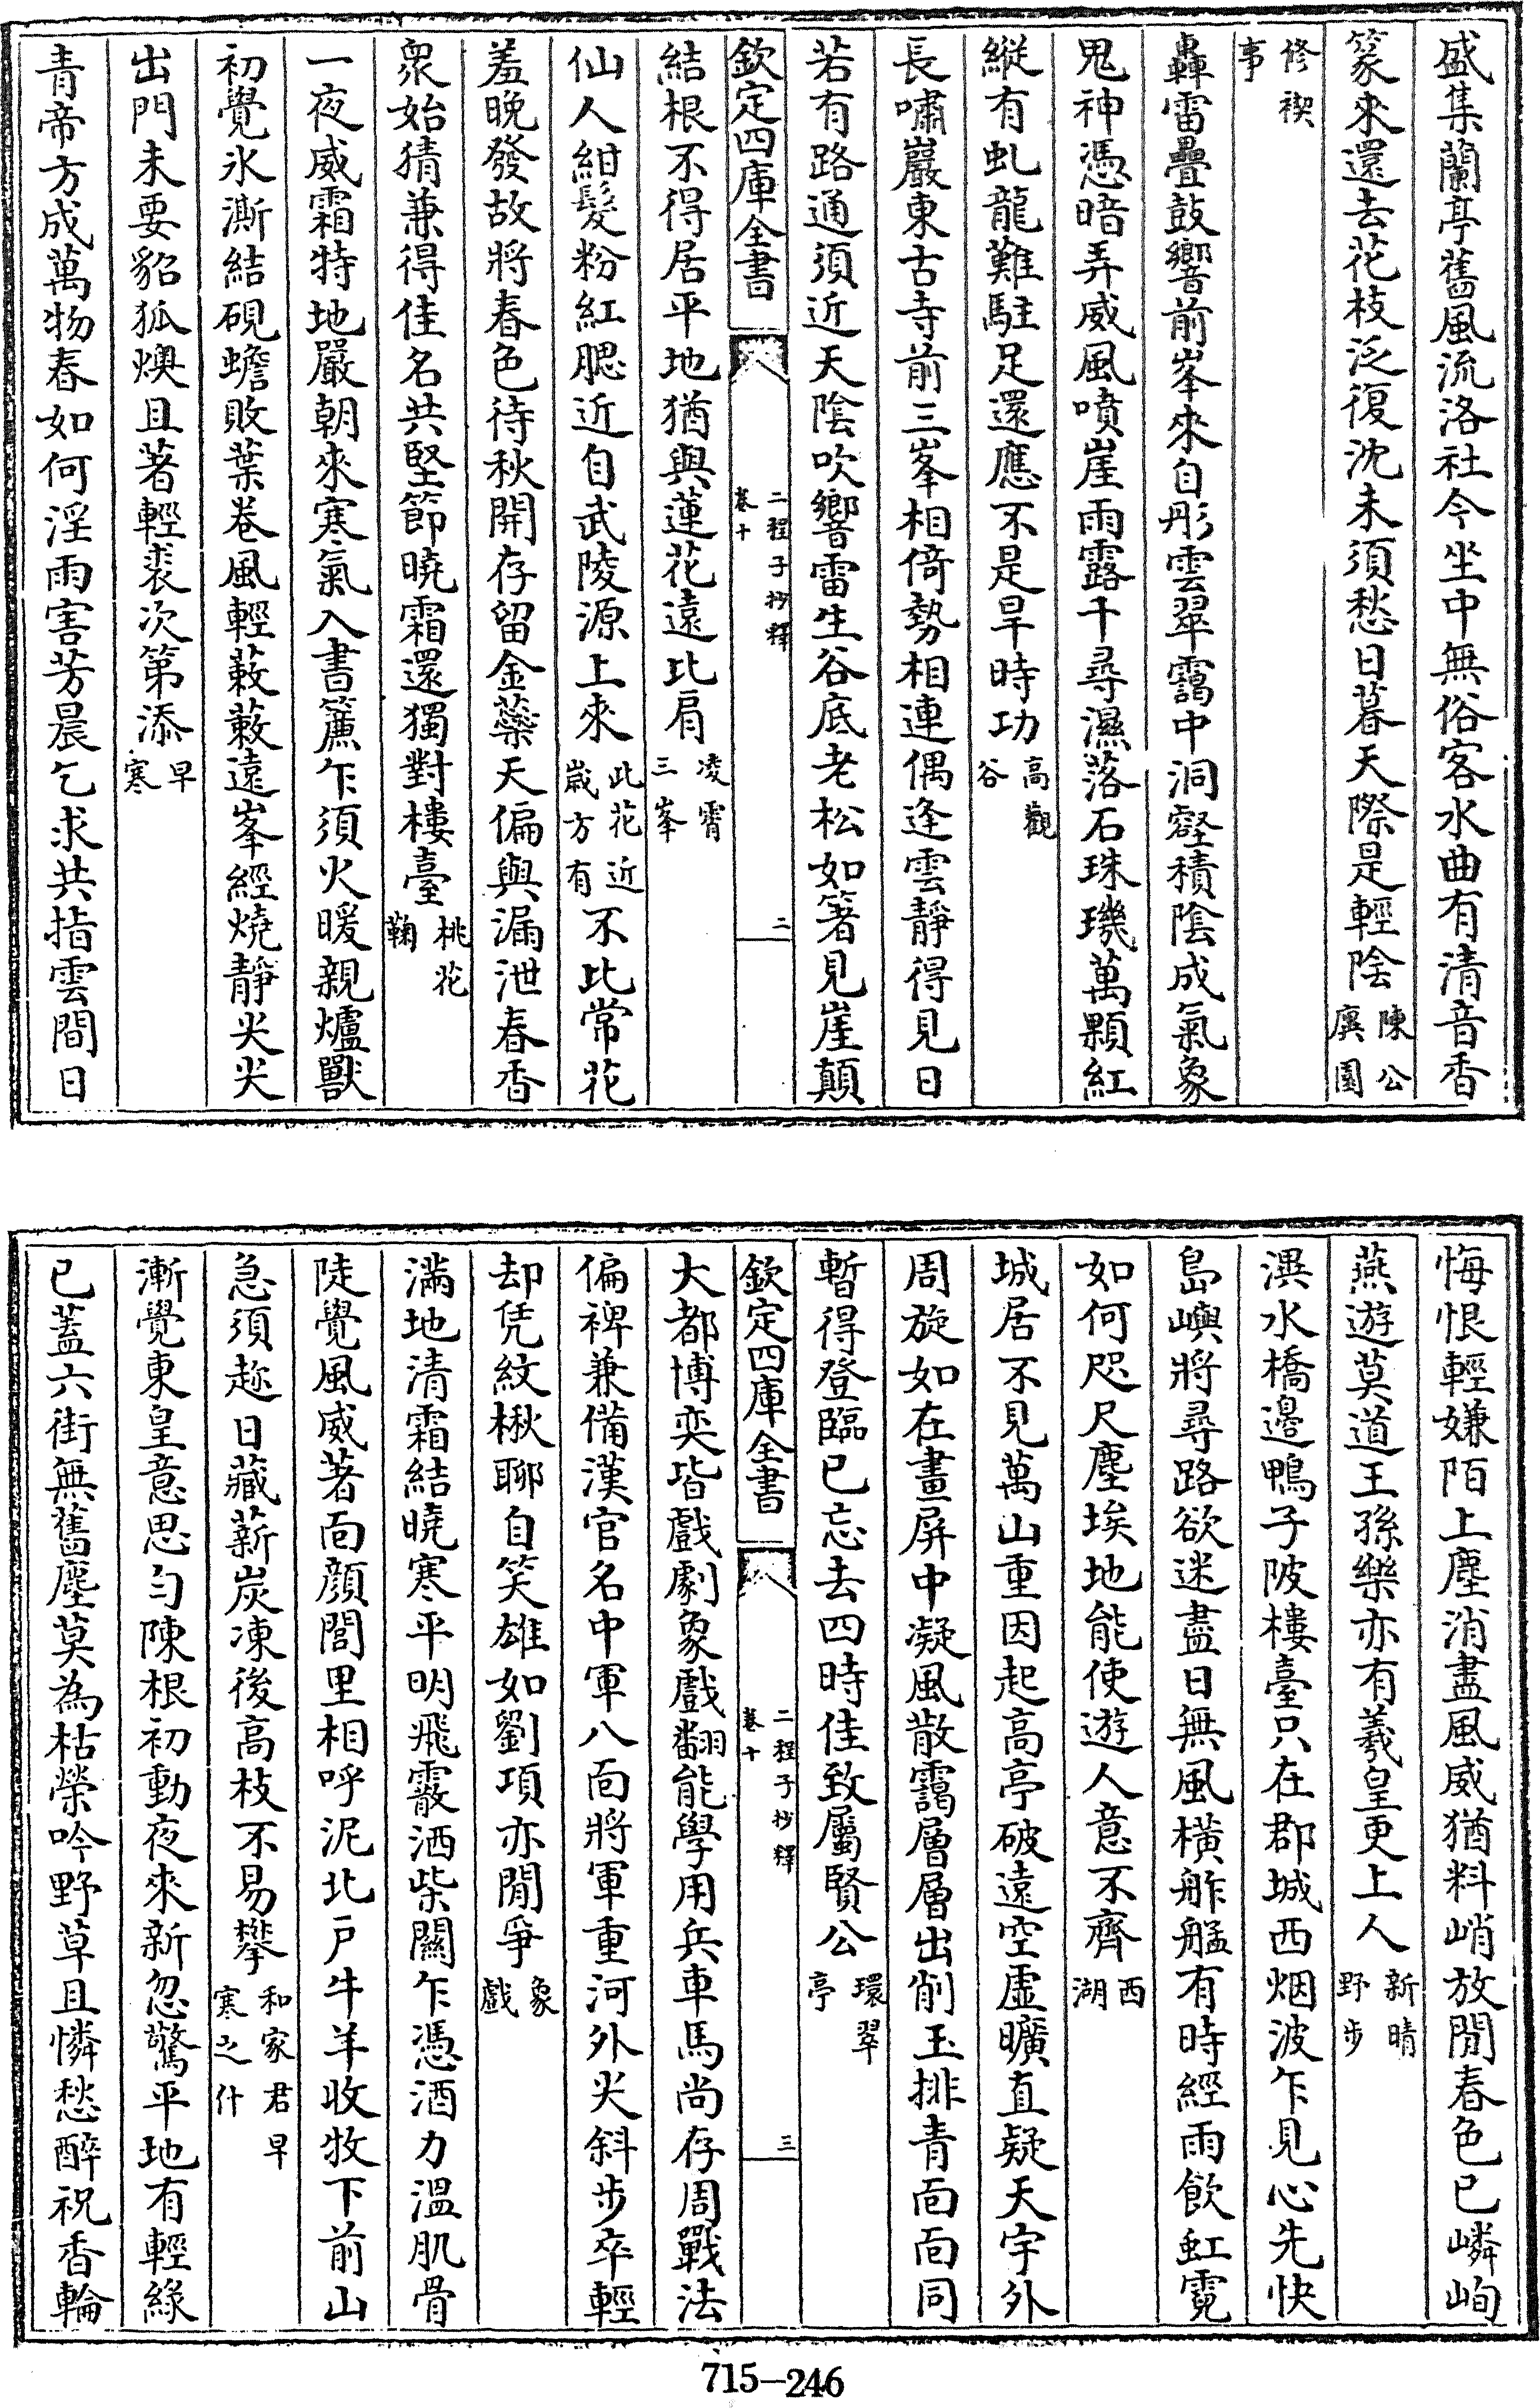 盛集蘭亭舊風流洛社今坐中無俗客水曲有清音香
篆來還去花枝泛復沈未須愁日暮天際是輕陰陳公廙園
修禊事
轟雷疊鼓響前峯來自彤雲翠靄中洞壑積陰成氣象
鬼神憑暗弄威風噴崖雨露千尋濕落石珠璣萬顆紅
縱有虬龍難駐足還應不是旱時功高觀谷
長嘯巖東古寺前三峯相倚勢相連偶逢雲靜得見日
若有路通須近天陰吹響雷生谷底老松如箸見崖顛
欽定四庫全書 二程子抄釋 卷十 二
結根不得居平地猶與蓮花遠比肩凌霄三峯
仙人紺髮粉紅腮近自武陵源上來此花近嵗方有不比常花
羞晚發故將春色待秋開存留金藥天偏與漏泄春香
衆始猜兼得佳名共堅節曉霜還獨對樓臺桃花鞠
一夜威霜特地嚴朝來寒氣入書簾乍須火暖親爐獸
初覺氷澌結硯蟾敗葉卷風輕蔌蔌遠峯經燒靜尖尖
出門未要貂狐燠且著輕裘次第添早寒
青帝方成萬物春如何淫雨害芳晨乞求共指雲間日
悔恨輕嫌陌上塵消盡風威猶料峭放閒春色已嶙峋
燕遊莫道王孫樂亦有羲皇更上人新晴野步
潩水橋邊鴨子陂樓臺只在郡城西烟波乍見心先快
島嶼將尋路欲迷盡日無風橫舴艋有時經雨飲虹霓
如何咫尺塵埃地能使遊人意不齊西湖
城居不見萬山重因起高亭破遠空虛曠直疑天宇外
周旋如在畫屏中凝風散靄層層出削玉排青面面同
暫得登臨已忘去四時佳致屬賢公環翠亭
欽定四庫全書 二程子抄釋 卷十 三
大都博奕皆戲劇象戲翻能學用兵車馬尚存周戰法
偏裨兼備漢官名中軍八面將軍重河外尖斜步卒輕
却凭紋楸聊自笑雄如劉項亦閒爭象戲
滿地清霜結曉寒平明飛霰洒柴關乍憑酒力溫肌骨
陡覺風威著面顔閭里相呼泥北戶牛羊收牧下前山
急須趂日藏薪炭凍後高枝不易攀和家君早寒之什
漸覺東皇意思勻陳根初動夜來新忽驚平地有輕綠
已蓋六街無舊塵莫為枯榮吟野草且憐愁醉祝香輪
715-246